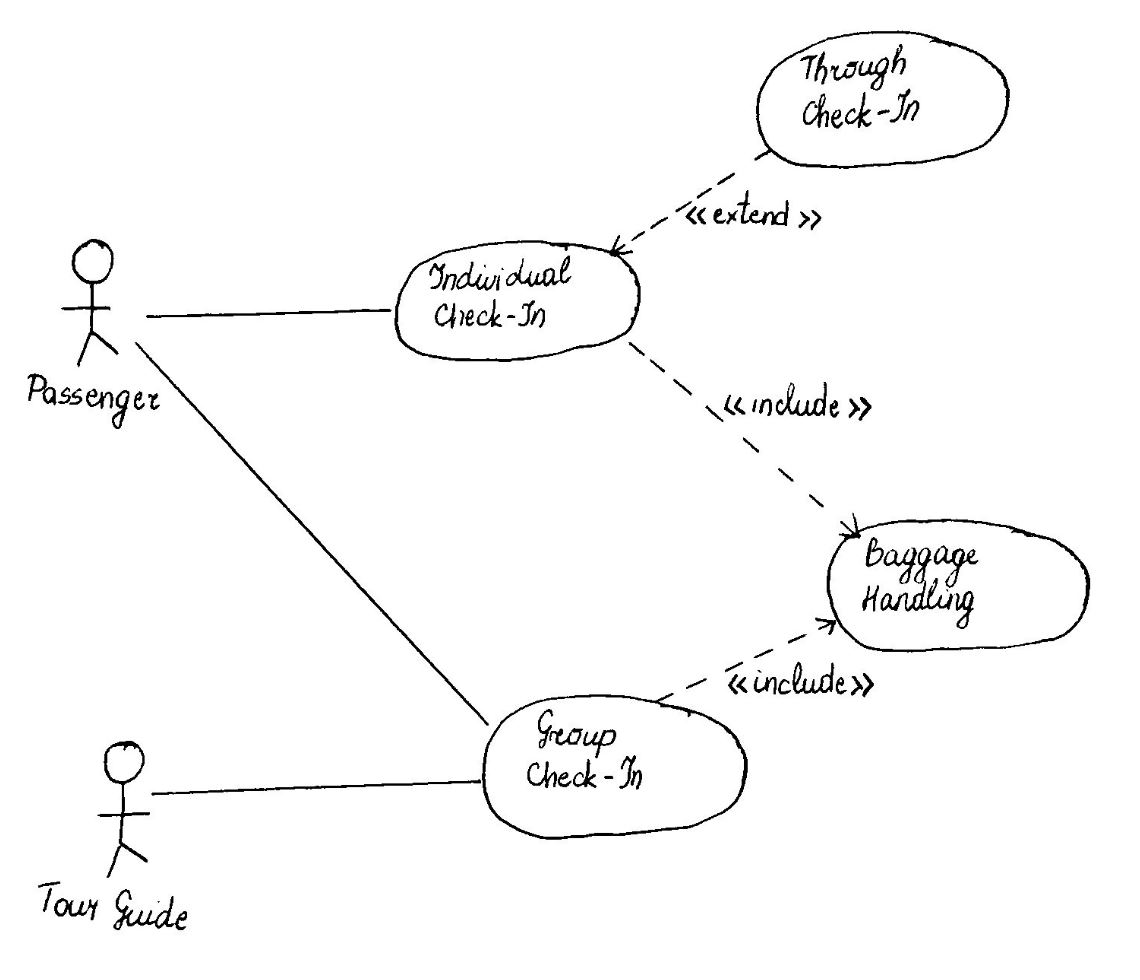 Through
Check-In
<<extend>>
Individual
Check-In
Passenger
<<include>>
Baggage
Handling
<<include>>
Group
Check-In
Tour Guide